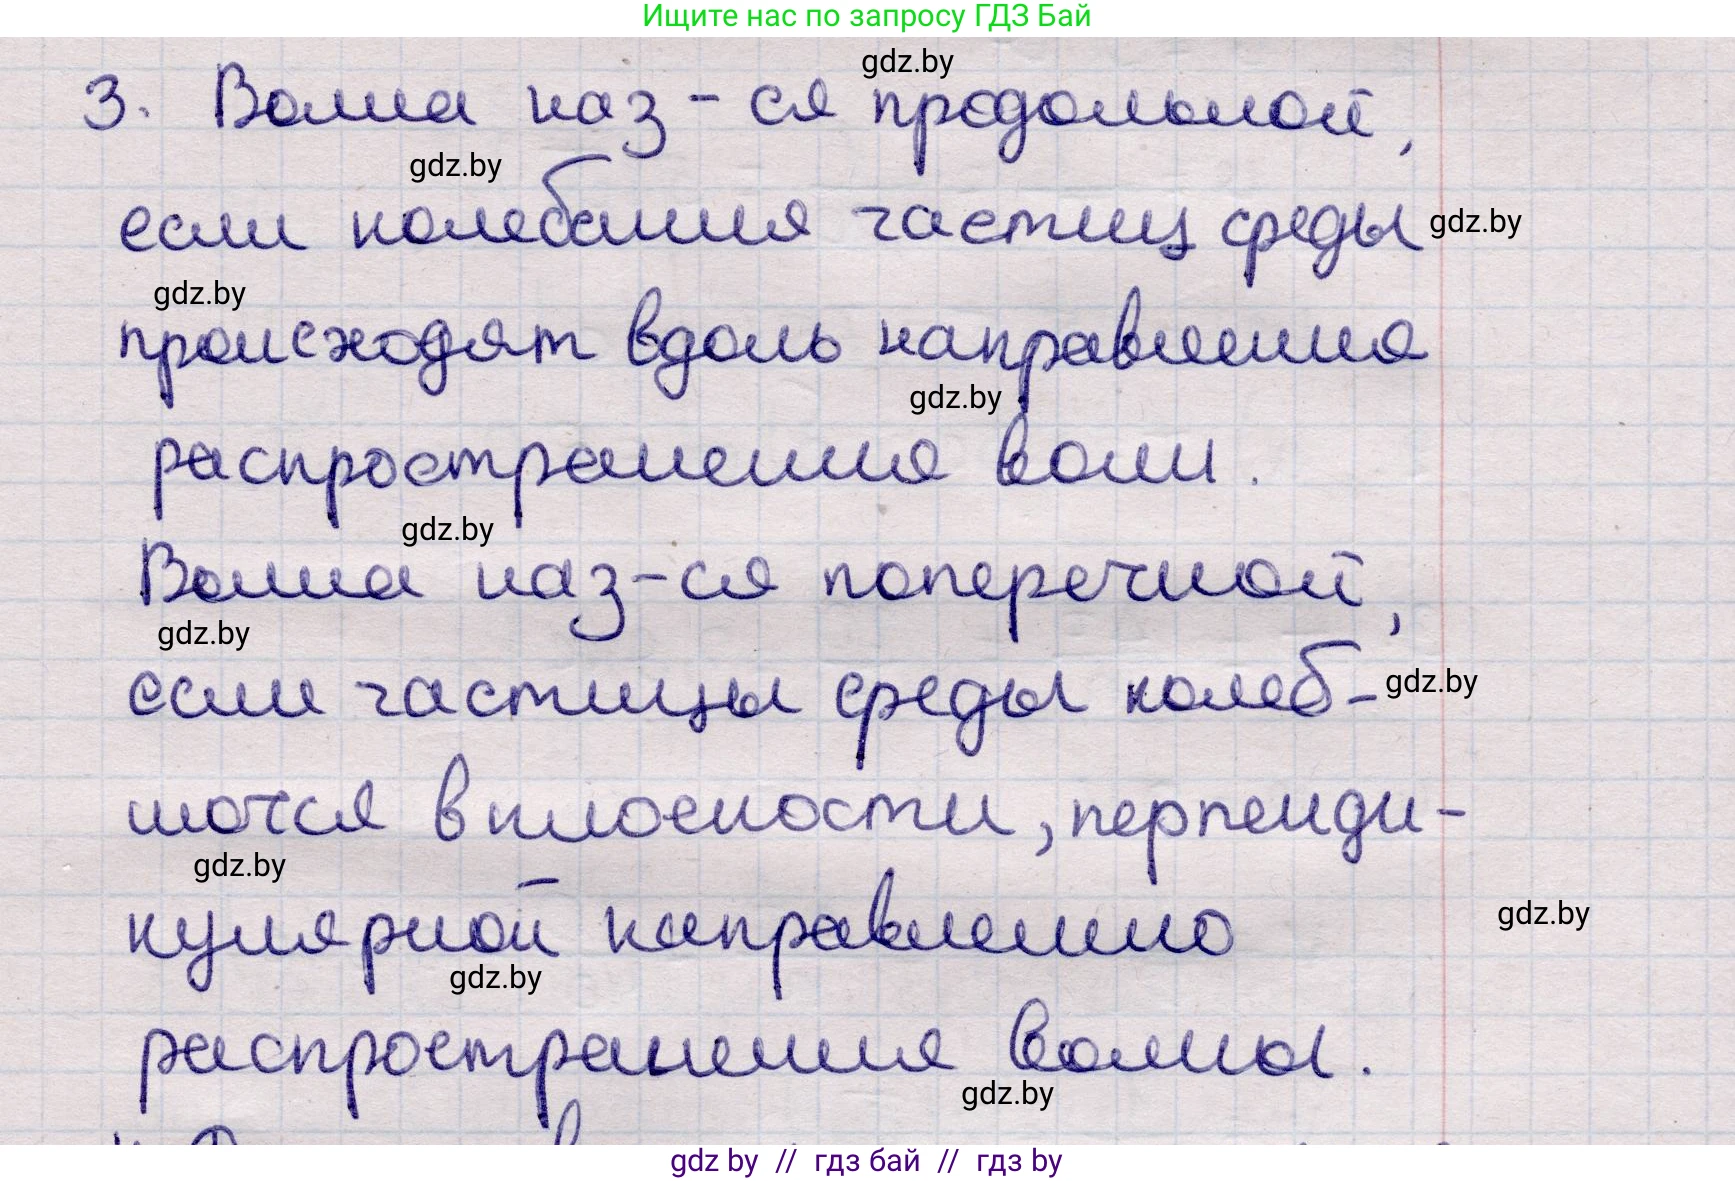 Ищите нас по запросу ГДЗ Бай
gdz.by
3. Волна наз-ся продольной,
gdz.by
если колебания частиц среды gdz.by
gdz.by
происходят вдоль направления
gdz.by
распространения волн.
gdz.by
Волна наз-ся поперечной,
gdz.by
если частицы среды колеб- gdz.by
лются в плоскости, перпенди-
gdz.by
кулярной направлению gdz.by
gdz.by
распространения волны.
gdz.by
gdz by // гдз бай // гдз by